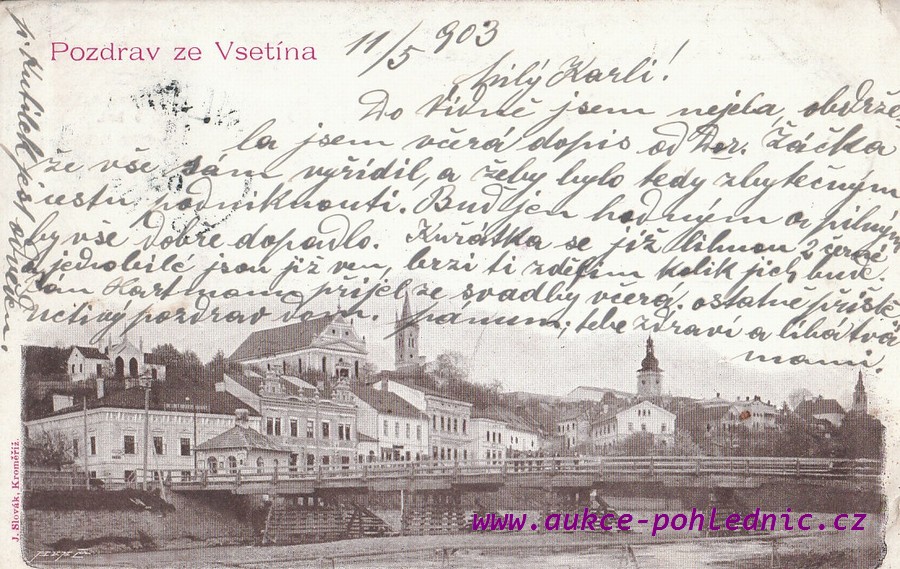 Pozdrav ze Vsetína
11/5 903
milý Karli!
Do Vídně jsem nejela, obdrže-
la jsem včera dopis od Dor. Žáčka
že vše sám vyřídil, a žeby bylo tedy zbytečným
cestu podniknouti. Buď jen hodným a pilným
by vše dobře dopadlo. Kuřátka se již lihnou 2 černé
a jedno bílé jsou již ven, brzi ti zdělím kolik jich bude.
Pan Hartmann přijel ze svadby včera. ostatně příště
Uctivý pozdrav dom. pánum, tebe zdraví a líbá tvá
mami.
p. Kubíček jest
J. Slovák, Kroměříž.
www.aukce-pohlednic.cz